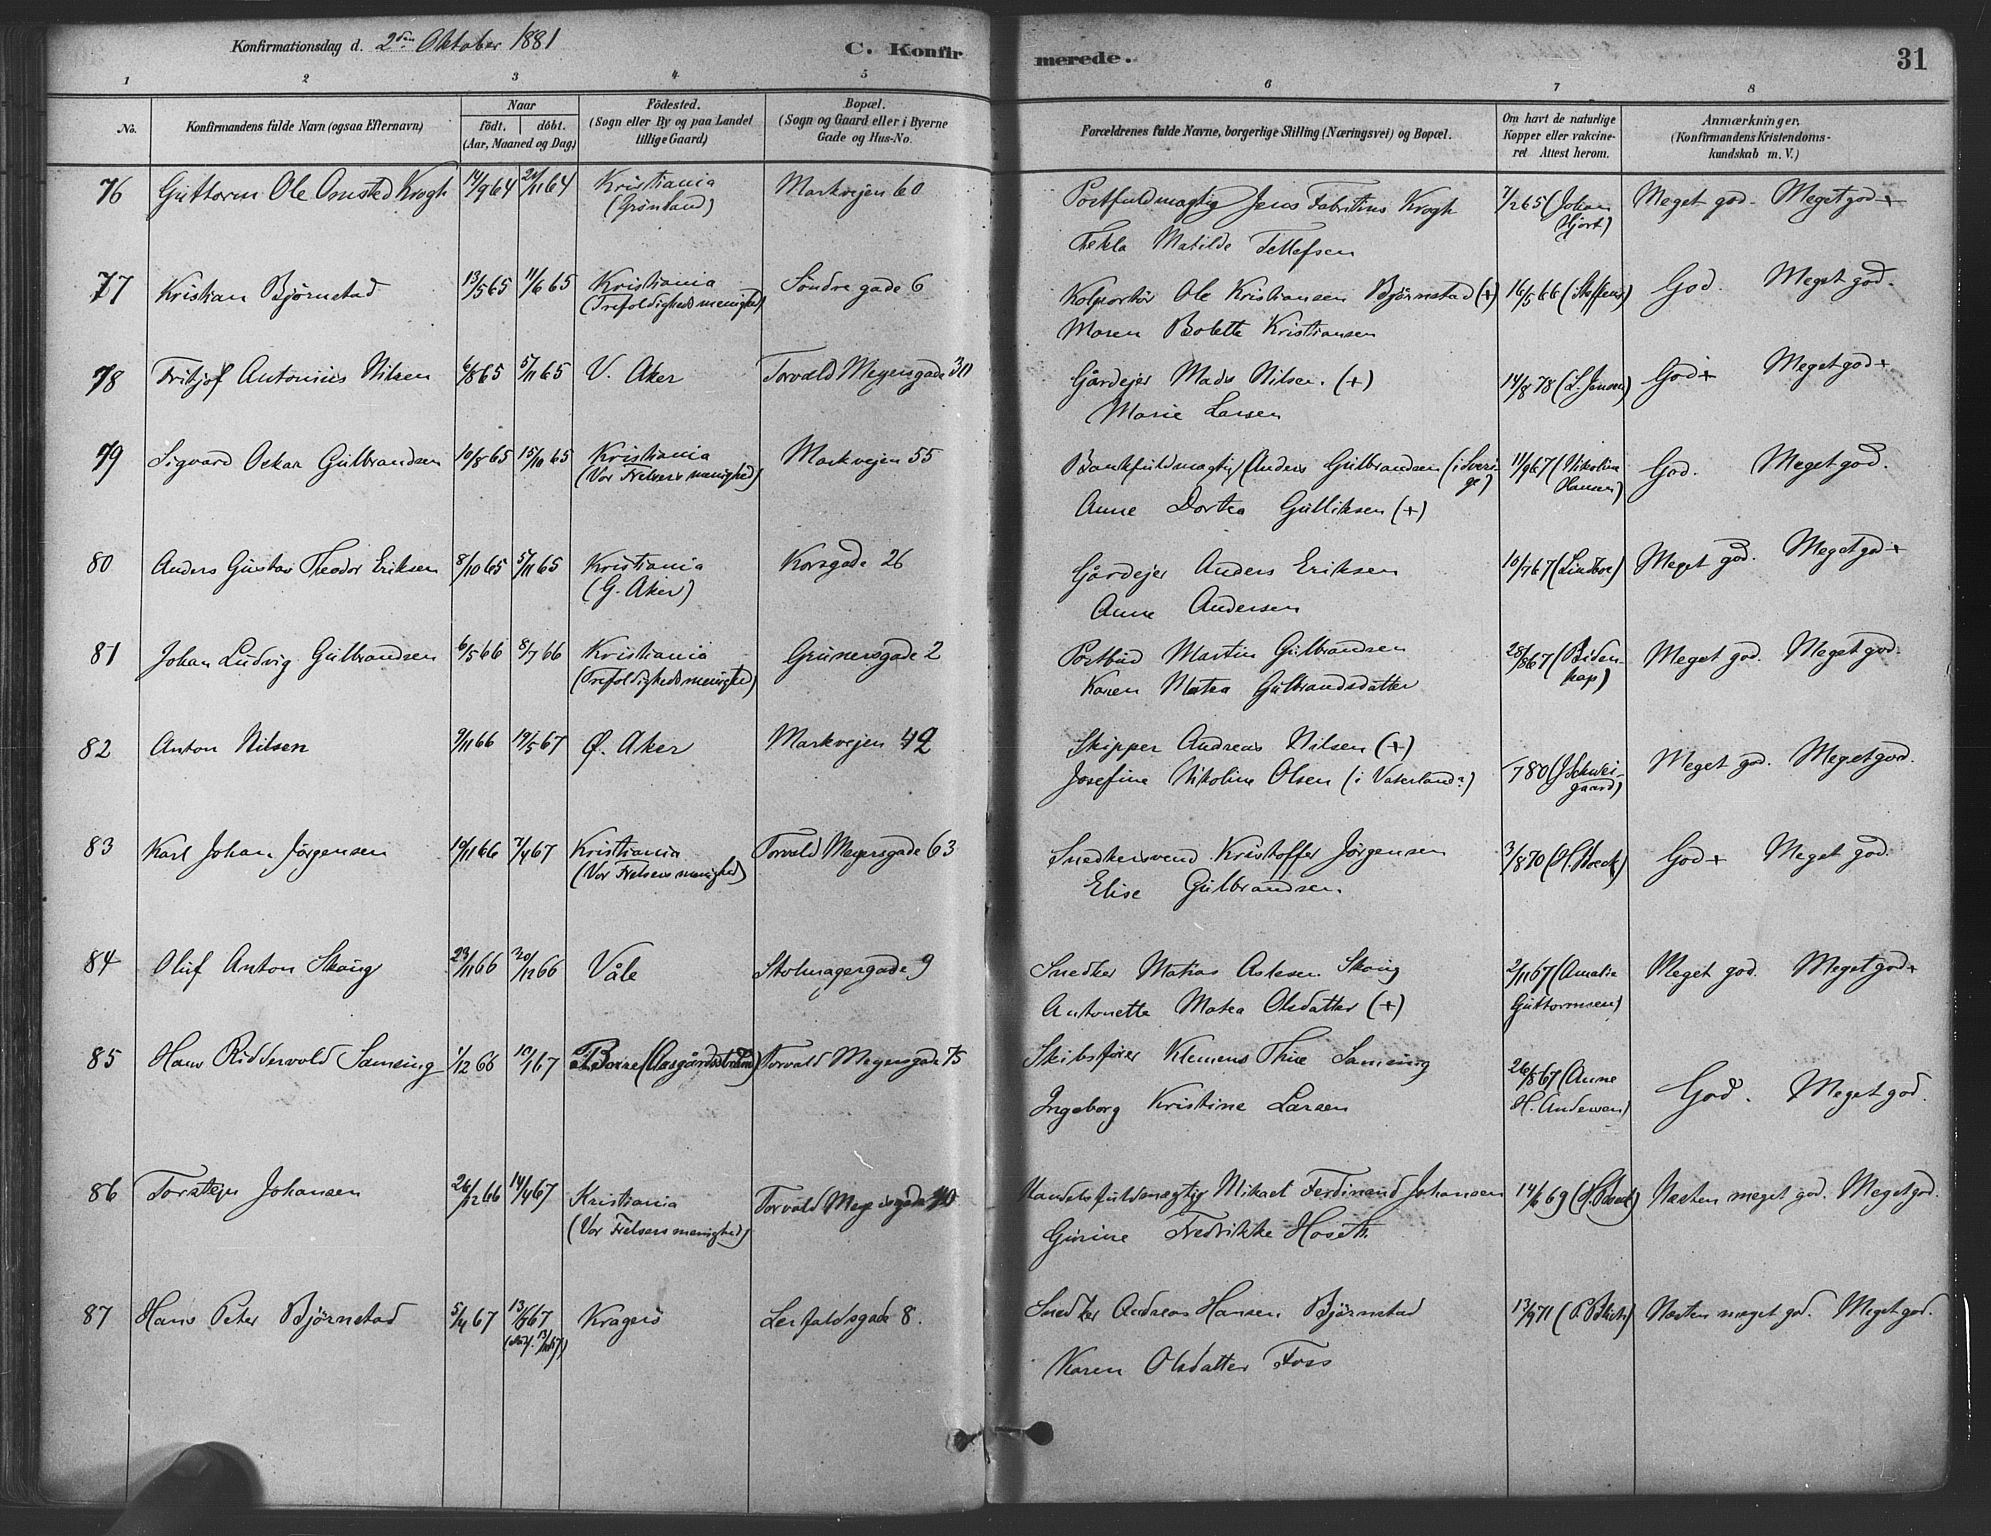 Konfirmationsdag d. 2den Oktober 1881
C. Konfir
merede.
31
1 2 3 4 5 6 7 8
No.
Konfirmandens fulde Navn (ogsaa Efternavn)
Naar
født. døbt.
(Aar, Maaned og Dag)
Födested.
(Sogn eller By og paa Landet
tillige Gaard)
Bopæl.
(Sogn og Gaard eller i Byerne
Gade og Hus-No.
Forældrenes fulde Navne, borgerlige Stilling (Næringsvei) og Bopæl.
Om havt de naturlige
Kopper eller vakcine-
ret Attest herom.
Anmærkninger.
(Konfirmandens Kristendoms-
kundskab m. V.)
76 Guttorm Ole Omsted Krogh 14/9 64 20/11 64 Kristiania Markvejen 60 Postfuldmægtig Jens Fabritius Krogh 7/2 65 (Johan Meget god. Meget god+
(Grønland) Tekla Matilde Tellefsen Hjort)
77 Kristian Bjørnstad 13/5 65 11/6 65 Kristiania Søndre gade 6 Kolportør Ole Kristiansen Bjørnstad (+) 16/5 66 (Steffens) God. Meget god.
(Trefoldighedsmenighed) Maren Bolette Kristiansen
78 Fritjof Antonius Nilsen 6/8 65 5/11 65 V. Aker Torvald Meyersgade 30 Gårdejer Mads Nilsen. (+) 14/8 78 (L. Jensen) God+ Meget god+
Marie Larsen
79 Sigvard Oskar Gulbrandsen 10/8 65 15/10 65 Kristiania Markvejen 55 Bankfuldmægtig Anders Gulbrandsen (i Sveri- 11/9 67 (Nikolina God. Meget god.
(Vor Frelsers menighed) ge) Hansen)
Anne Dortea Gulliksen (+)
80 Anders Gustav Theodor Eriksen 8/10 65 5/11 65 Kristiania Korsgade 26 Gårdejer Anders Eriksen 10/7 67 (Lindboe) Meget god. Meget god+
(G. Aker) Anne Andersen
81 Johan Ludvig Gulbrandsen 6/5 66 8/7 66 Kristiania Grünersgade 2 Postbud Martin Gulbrandsen 28/8 67 (Biden- Meget god. Meget god.
(Trefoldighedsmenighed) Karen Matea Gulbrandsdatter kap)
82 Anton Nilsen 9/11 66 19/5 67 Ø. Aker Markvejen 42 Skipper Andreas Nilsen (+)
Josefine Nikoline Olsen (i Vaterland?) /7 80 (Schwei- Meget god. Meget god.
gaard)
83 Karl Johan Jørgensen 10/11 66 7/4 67 Kristiania Torvald Meyersgade 63 Snedkersvend Kristoffer Jørgensen 3/8 70 (H. Boeck) God+ Meget god.
(Vor Frelsers menighed) Elise Gulbrandsen
84 Oluf Anton Skoug 23/11 66 20/12 66 Våle Stolmagergade 9 Snedker Matias Aslesen Skoug 2/11 67 (Amalie Meget god. Meget god+
Antonette Matea Olsdatter (+) Guttormsen)
85 Hans Riddervold Samsing 1/12 66 10/1 67 Borre (Aasgårdsstrand) Torvald Meyersgade 75 Skibsfører Klemens Thue Samsing 26/8 67 (Anne God. Meget god.
Ingeborg Kristine Larsen H. Andersen)
86 Torstein Johansen 26/12 66 14/4 67 Kristiania Torvald Meyersgade 40 Handelsfuldmægtig Mikael Ferdinand Johansen 14/6 69 Næsten meget god. Meget god.
(Vor Frelsers menighed) Gurine Fredrikke Hoseth
87 Hans Peter Bjørnstad 5/4 67 13/ 67 Kragerø Lerfaldsgade 8. Snedker Andreas Hansen Bjørnstad 13/9 71 Næsten meget god. Meget god.
Karen Olsdatter Foss